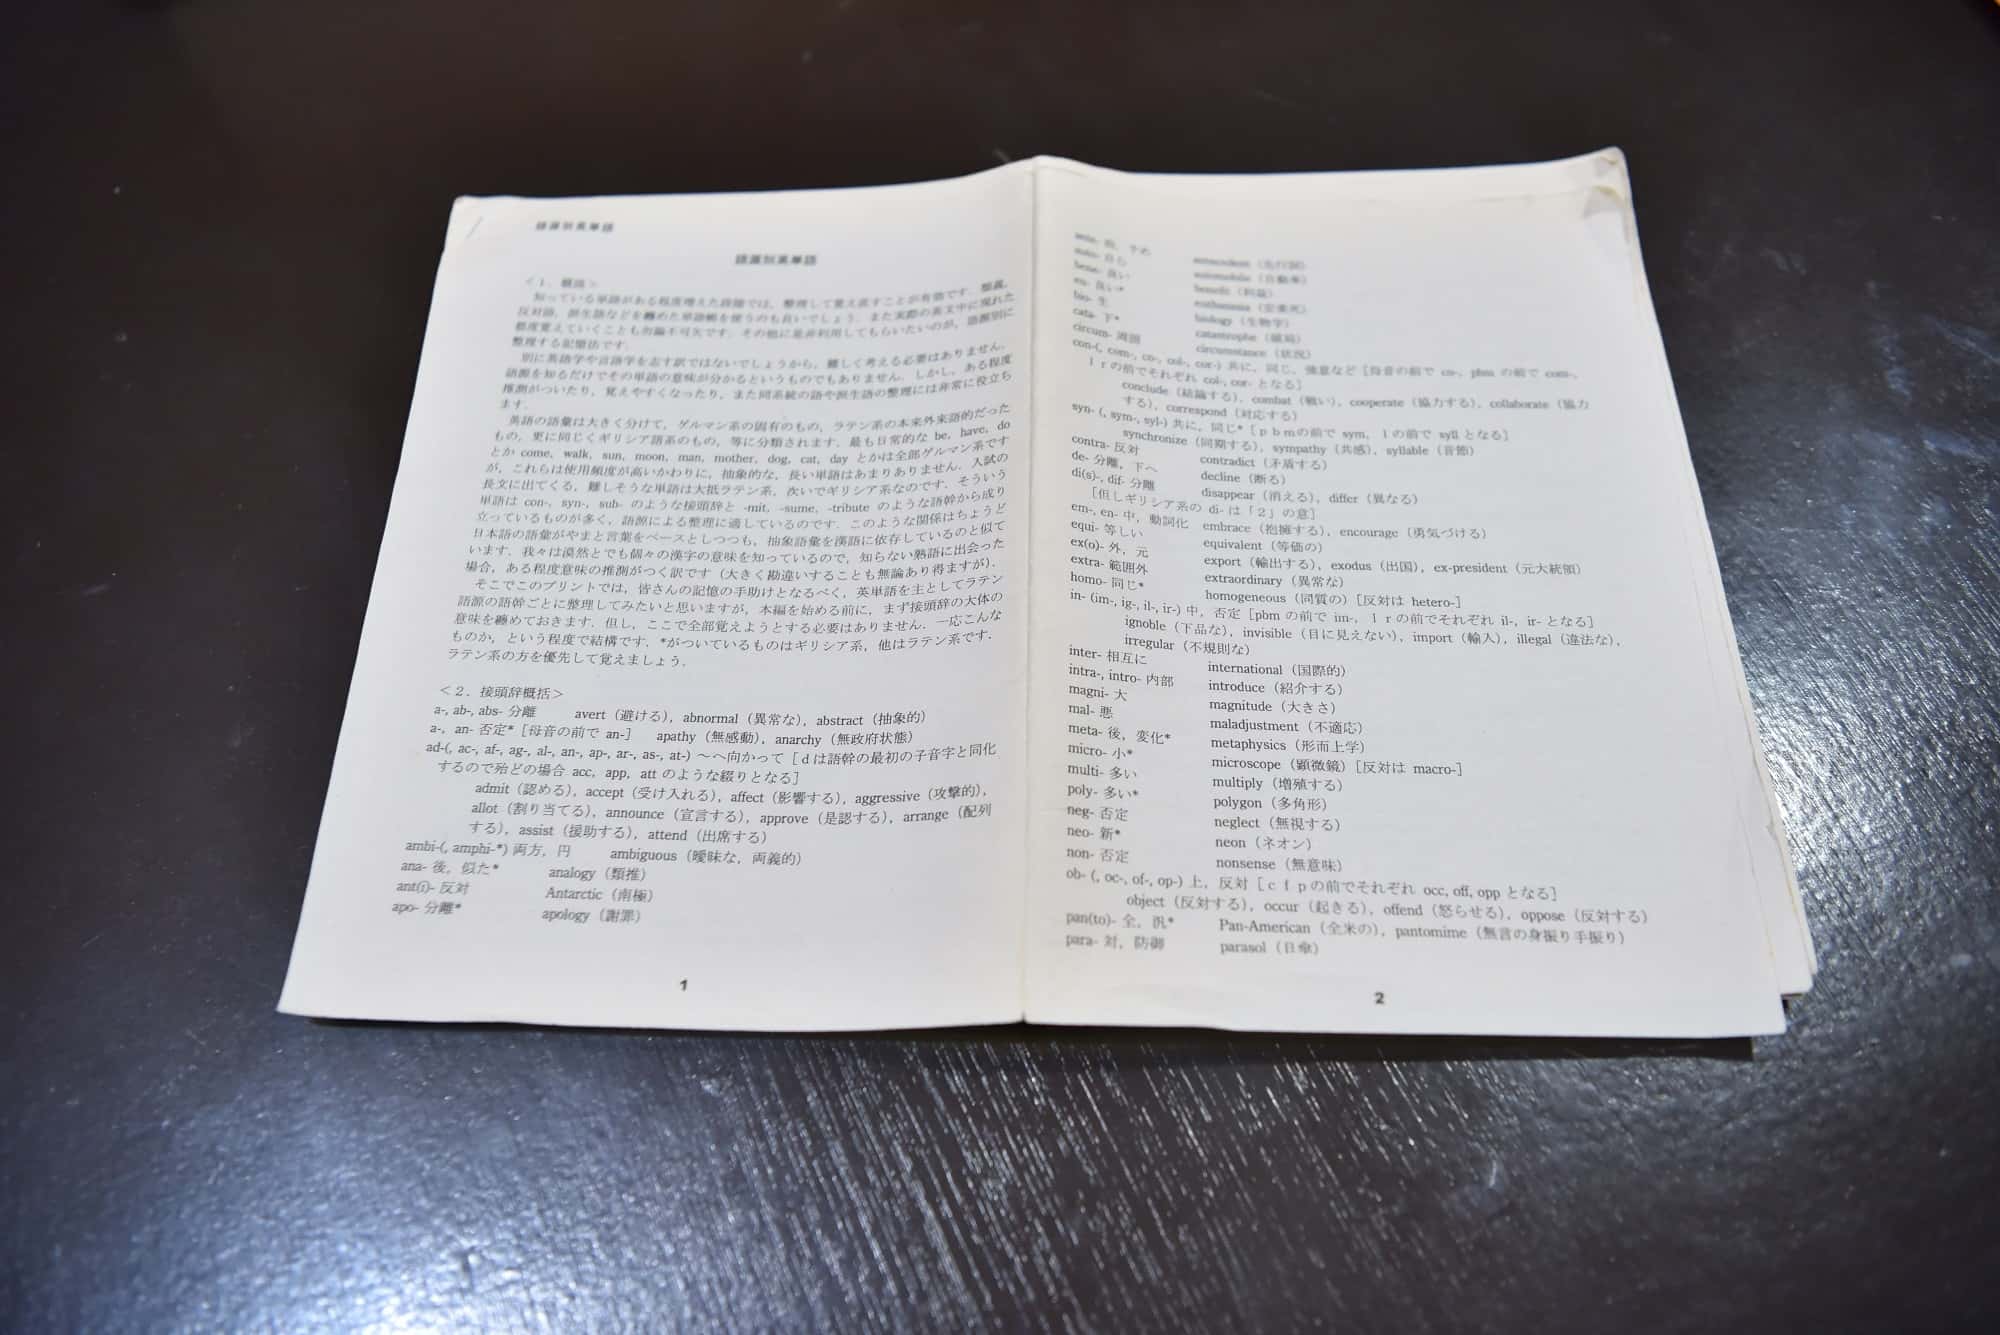 語源別英単語
語源別英単語
＜１．概説＞
知っている単語がある程度増えた段階では，整理して覚え直すことが有効です．類義，
反対語，派生語などを纏めた単語帳を使うのも良いでしょう．また実際の英文中に現れた
都度覚えていくことも勿論不可欠です．その他に是非利用してもらいたいのが，語源別に
整理する記憶法です．
別に英語学や言語学を志す訳ではないでしょうから，難しく考える必要はありません．
語源を知るだけでその単語の意味が分かるというものでもありません．しかし，ある程度
推測がついたり，覚えやすくなったり，また同系統の語や派生語の整理には非常に役立ち
ます．
英語の語彙は大きく分けて，ゲルマン系の固有のもの，ラテン系の本来外来語的だった
もの，更に同じくギリシア語系のもの，等に分類されます．最も日常的な be, have, do
とか come, walk, sun, moon, man, mother, dog, cat, day とかは全部ゲルマン系です
が，これらは使用頻度が高いかわりに，抽象的な，長い単語はあまりありません．入試の
長文に出てくる，難しそうな単語は大抵ラテン系，次いでギリシア系なのです．そういう
単語は con-, syn-, sub- のような接頭辞と -mit, -sume, -tribute のような語幹から成り
立っているものが多く，語源による整理に適しているのです．このような関係はちょうど
日本語の語彙がやまと言葉をベースとしつつも，抽象語彙を漢語に依存しているのと似て
います．我々は漠然とでも個々の漢字の意味を知っているので，知らない熟語に出会った
場合，ある程度意味の推測がつく訳です（大きく勘違いすることも無論あり得ますが）．
そこでこのプリントでは，皆さんの記憶の手助けとなるべく，英単語を主としてラテン
語源の語幹ごとに整理してみたいと思いますが，本編を始める前に，まず接頭辞の大体の
意味を纏めておきます．但し，ここで全部覚えようとする必要はありません．一応こんな
ものか，という程度で結構です．*がついているものはギリシア系，他はラテン系です．
ラテン系の方を優先して覚えましょう．
＜２．接頭辞概括＞
a-, ab-, abs- 分離 avert（避ける），abnormal（異常な），abstract（抽象的）
a-, an- 否定*［母音の前で an-］ apathy（無感動），anarchy（無政府状態）
ad-(, ac-, af-, ag-, al-, an-, ap-, ar-, as-, at-) ～へ向かって［ｄは語幹の最初の子音字と同化
するので殆どの場合 acc, app, att のような綴りとなる］
admit（認める），accept（受け入れる），affect（影響する），aggressive（攻撃的），
allot（割り当てる），announce（宣言する），approve（是認する），arrange（配列
する），assist（援助する），attend（出席する）
ambi-(, amphi-*) 両方，円 ambiguous（曖昧な，両義的）
ana- 後，似た* analogy（類推）
ant(i)- 反対 Antarctic（南極）
apo- 分離* apology（謝罪）
1
ante- 前，予め antecedent（先行詞）
auto- 自ら automobile（自動車）
bene- 良い benefit（利益）
eu- 良い* euthanasia（安楽死）
bio- 生 biology（生物学）
cata- 下* catastrophe（破局）
circum- 周囲 circumstance（状況）
con-(, com-, co-, col-, cor-) 共に，同じ，強意など［母音の前で co-, pbm の前で com-,
ｌｒの前でそれぞれ col-, cor- となる］
conclude（結論する），combat（戦い），cooperate（協力する），collaborate（協力
する），correspond（対応する）
syn- (, sym-, syl-) 共に，同じ*［ｐｂｍの前で sym, ｌの前で syll となる］
synchronize（同期する），sympathy（共感），syllable（音節）
contra- 反対 contradict（矛盾する）
de- 分離，下へ decline（断る）
di(s)-, dif- 分離 disappear（消える），differ（異なる）
［但しギリシア系の di- は「２」の意］
em-, en- 中，動詞化 embrace（抱擁する），encourage（勇気づける）
equi- 等しい equivalent（等価の）
ex(o)- 外，元 export（輸出する），exodus（出国），ex-president（元大統領）
extra- 範囲外 extraordinary（異常な）
homo- 同じ* homogeneous（同質の）［反対は hetero-］
in- (im-, ig-, il-, ir-) 中，否定［pbm の前で im-, ｌｒの前でそれぞれ il-, ir- となる］
ignoble（下品な），invisible（目に見えない），import（輸入），illegal（違法な），
irregular（不規則な）
inter- 相互に international（国際的）
intra-, intro- 内部 introduce（紹介する）
magni- 大 magnitude（大きさ）
mal- 悪 maladjustment（不適応）
meta- 後，変化* metaphysics（形而上学）
micro- 小* microscope（顕微鏡）［反対は macro-］
multi- 多い multiply（増殖する）
poly- 多い* polygon（多角形）
neg- 否定 neglect（無視する）
neo- 新* neon（ネオン）
non- 否定 nonsense（無意味）
ob- (, oc-, of-, op-) 上，反対［ｃｆｐの前でそれぞれ occ, off, opp となる］
object（反対する），occur（起きる），offend（怒らせる），oppose（反対する）
pan(to)- 全，汎* Pan-American（全米の），pantomime（無言の身振り手振り）
para- 対，防御 parasol（日傘）
2